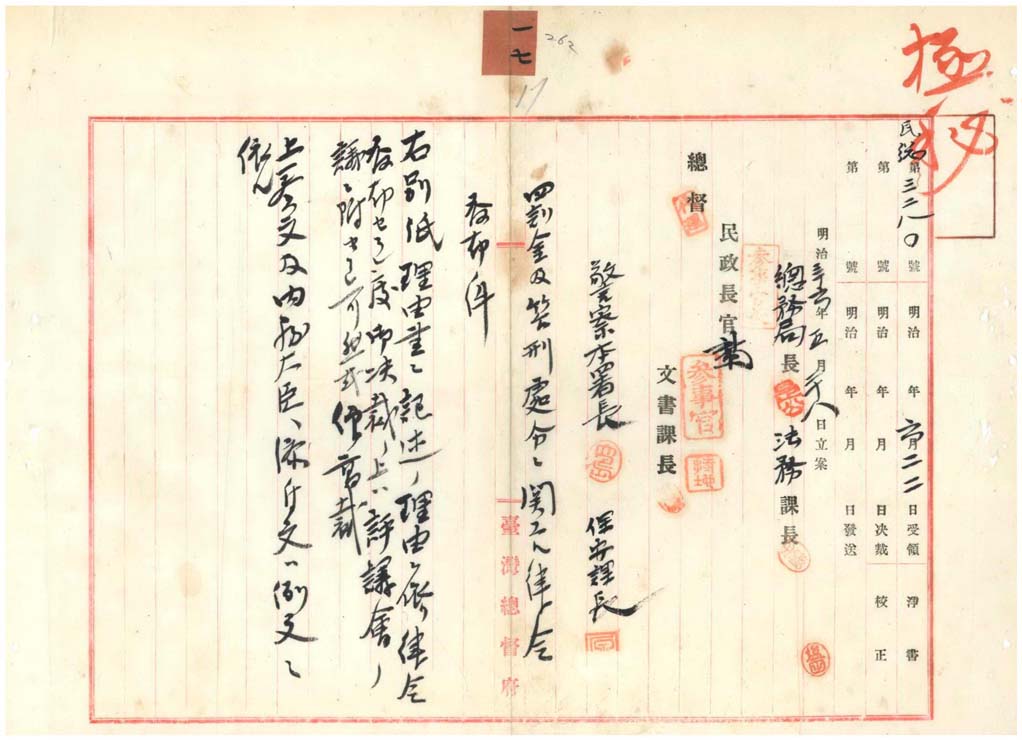 極秘
一七
262
17
民総第三三八〇號 明治 年 六月二二日受領 淨書
第 號 明治 年 月 日決裁 校正
第 號 明治 年 月 日發送
明治三十六年五月 日立案
總務局長 法務課長
參事官
總督
民政長官
參事官
文書課長
警察本署長 保安課長
罰金及笞刑處分ニ関スル律令
發布ノ件
右別紙理由書ニ記述ノ理由ニ依リ律令
發布セラレ度御決裁ノ上ハ評議會ノ
議ニ附セラレ可然哉仰高裁
上奏文及内務大臣ヘ添付文ハ例文ニ
依ル
臺灣總督府